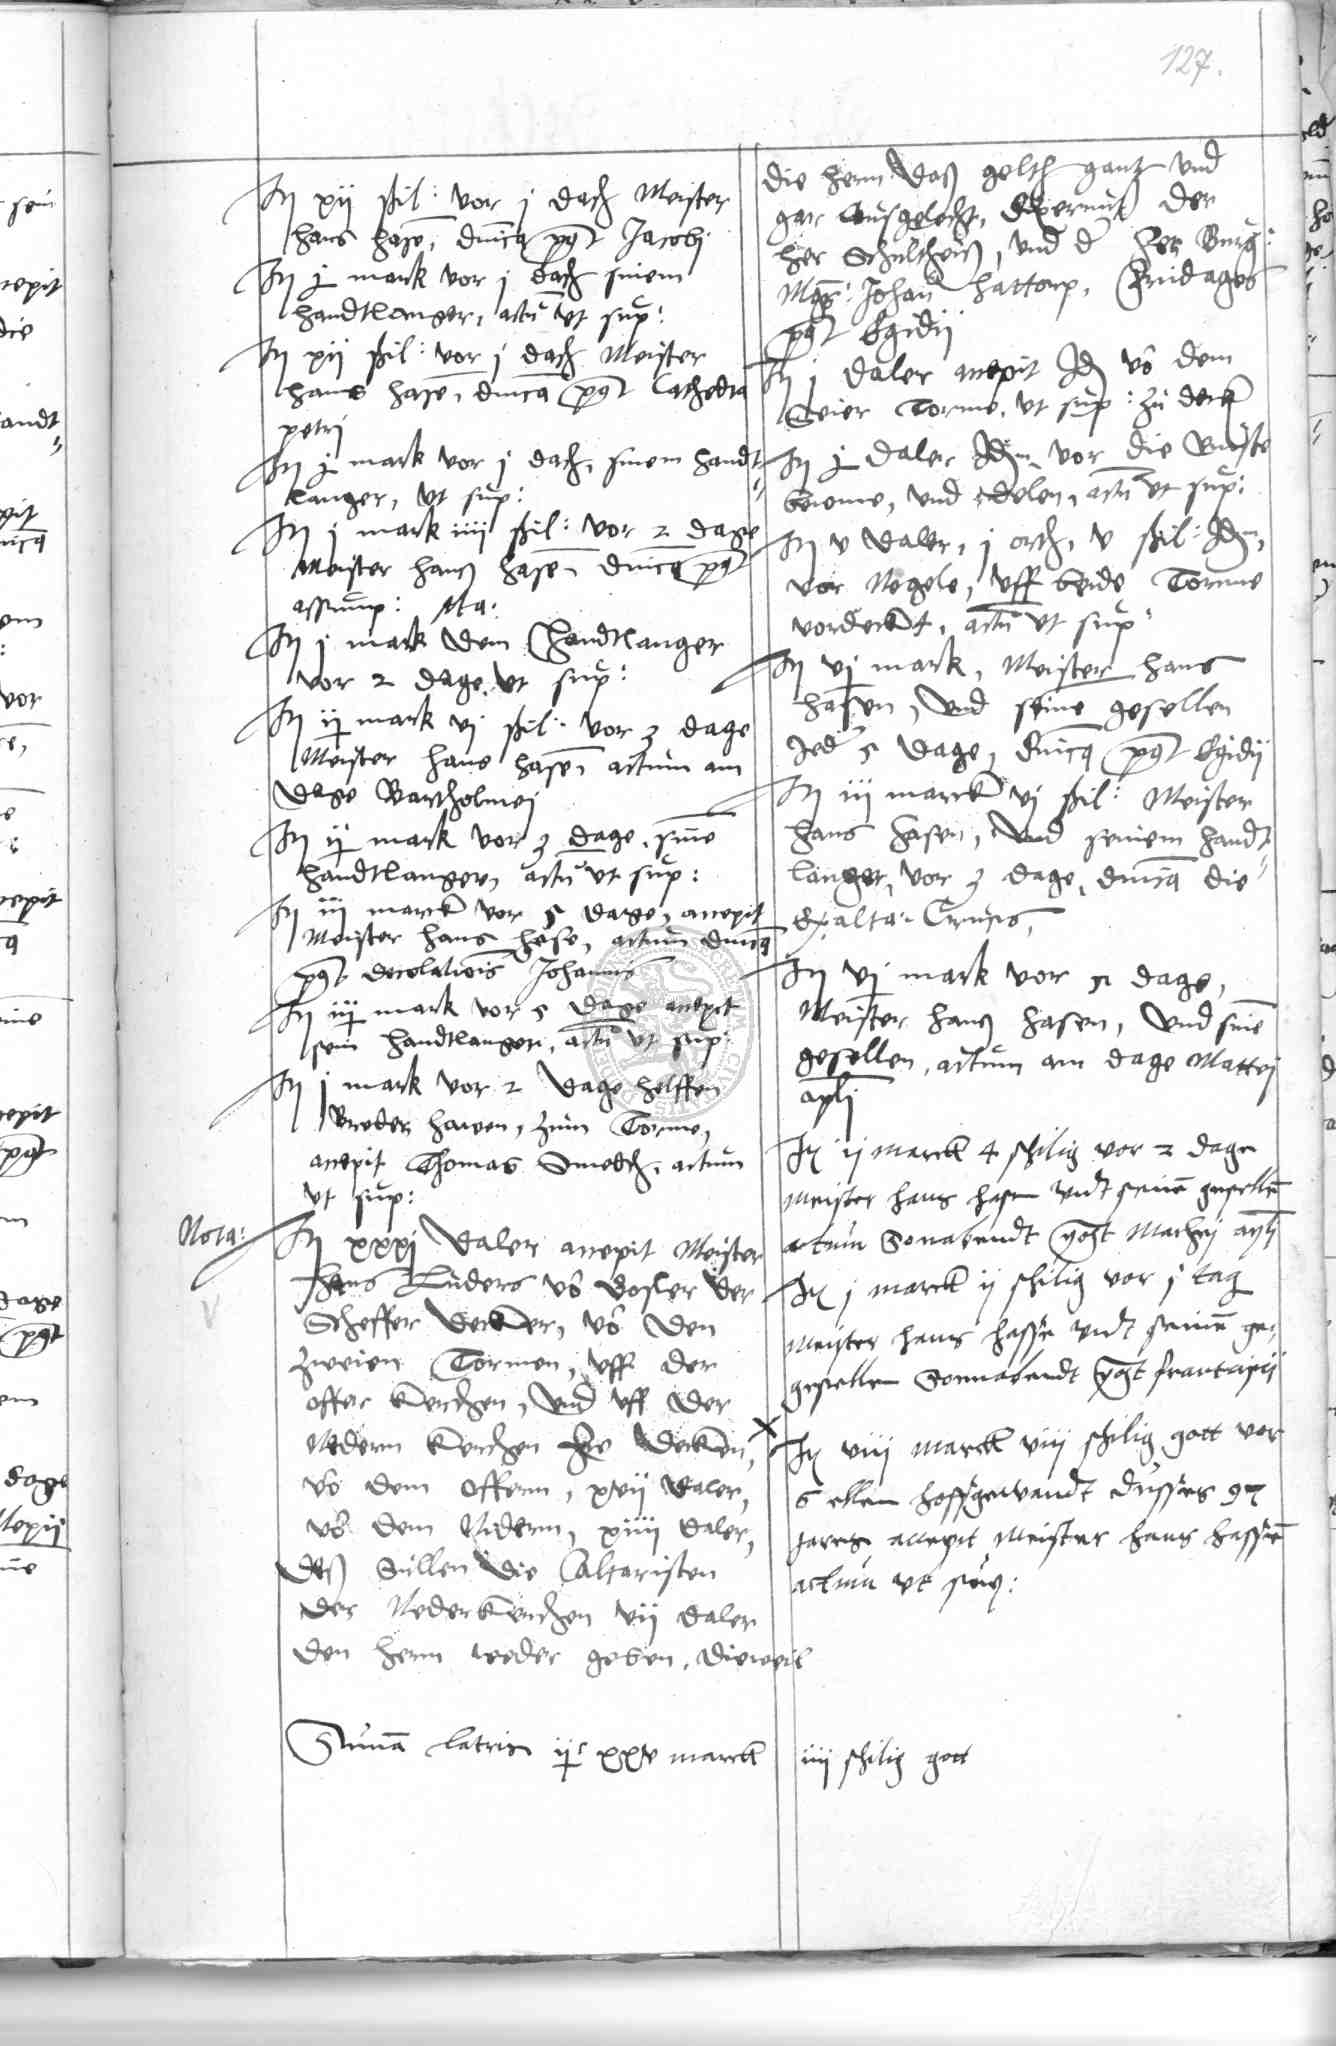 127.
It xij ßil: vor j dach Meister
hans hasē, dnica pōt Jacobj
It j mark vor j dach sinem
handtlanger, actū ut sup:
It xij ßil: vor j dach Meister
hans hasē, dnica pōt Cathedra
petrj
It j mark vor j dach, sinem handt
langer, ut sup:
It j mark iiij ßil: vor 2 dage
Meister hans hasē, dnica pōt
assump: Ma:
It j mark dem handtlanger
vor 2 dage, ut sup:
It ij mark vj ßil: vor 3 dage
Meister hans hasē, actum am
dage Bartholmej
It ij mark vor 3 dage, sinē
handtlanger, actū ut sup:
It iij marck vor 5 dage, accepit
Meister hans hase, actum dnica
pōt decolationis Johannis
It iij mark vor 5 dage accepit
sein handtlanger, actū ut sup:
It j mark vor 2 dage helffen
Breder hawen, zum Torme,
accepit Thomas Smedth, actum
ut sup:
Nota:
It xxxj daler accepit Meister
Hans Luders vō Goslar der
Scheffer decker, vō den
zweien Tormen, uff der
offer kerchen, und uff der
Nedern kerchen zu decken,
vō dem Offern, xvij daler,
vō dem Nidern, xiiij daler,
deß sullen die Altaristen
der Nederkerchen vij daler
den hern weder geben, dieweil
die hern daß gelth gantz und
gar ausgelecht, der
her Schultheis, und d her Burg:
Mgs: Johan hattorp, fridages
pōt Egidij
It j daler accepit Id vō dem
Seier Torme, ut sup: zu deck
It j daler Idm, vor die Ruste
beiome, und delen, actū ut sup:
It v daler, j orth, v ßil: Idm,
vor Negele, uff beide Torme
vordeckt, actū ut sup:
It vj mark, Meister hans
hasen, und seine gesellen
Jed 5 dage, dnica pōt Egidij
It iij marck vj ßil: Meister
hans hasen, und seinem handt
langer, vor 3 dage, dnica die
Exalta: Crucis,
It vj mark vor 5 dage,
Meister hans hasen, und sinē
gesellen, actum am dage Mattej
apli
It ij marck 4 schilig vor 2 dage
meister hans hasen undt seinē gesellē
actum Sonabendt post Mathej apli
It j marck ij schilig vor j tag
meister hans hasse undt seinē ge-
gesellen Sonnabendt post francisci
It viij marck viij schilig gott vor
6 ellen hoffgewandt dusses
jares accepit meister hans hassē
actum ut sup:
Sumā lateris ijc xxv marck iiij schilig gott